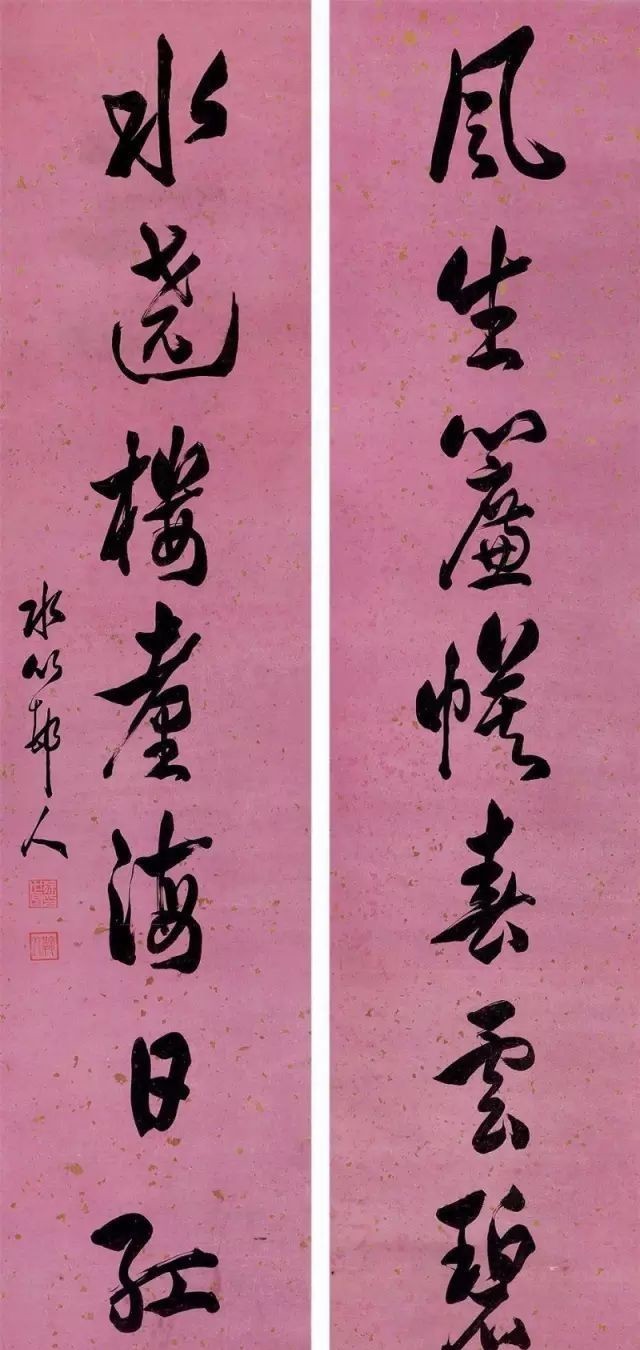 風生簾幙春雲碧
水遶樓臺海日紅
水竹邨人